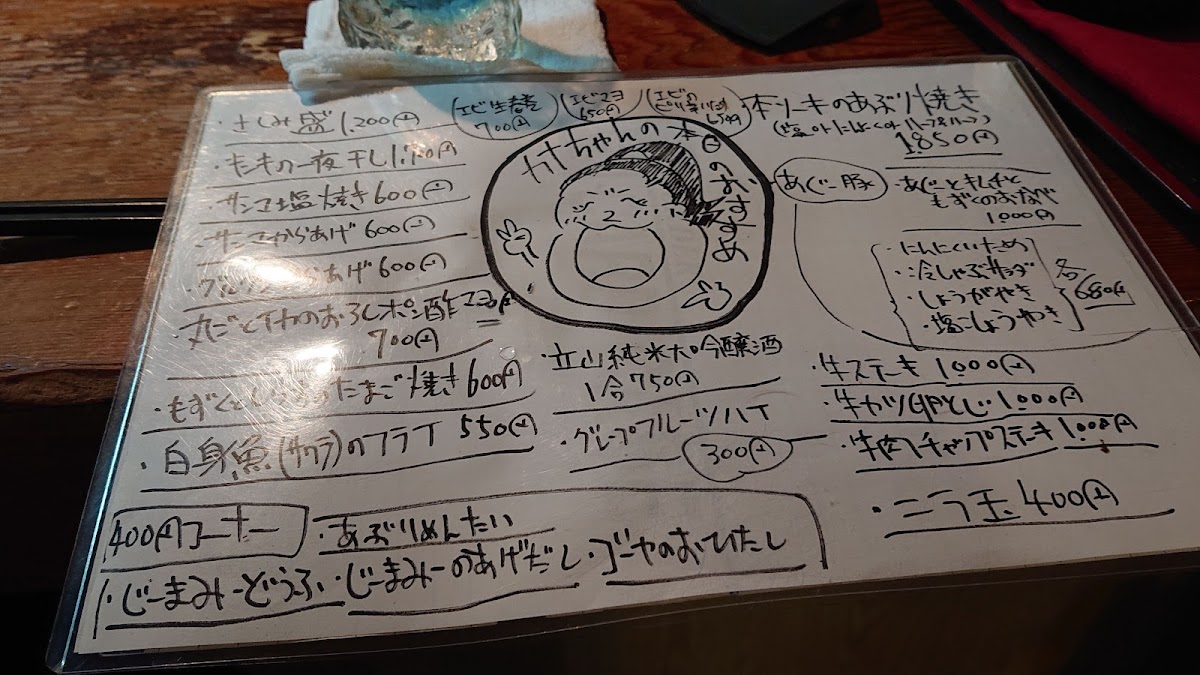 カナちゃんの本日のおすすめ
・さしみ盛 1,200円
エビ生春巻
700円
エビマヨ
650円
エビの
本ソーキのあぶり焼き
1,850円
の一夜干し 1,700円
・サンマ塩焼き 600円
・サンマからあげ 600円
からあげ 600円
・丸ごとイカのおろしポン酢
700円
・もずくと たまご焼き 600円
・白身魚()のフライ 550円
・立山純米大吟醸酒
1合 750円
・グレープフルーツハイ
300円
あぐー豚
・あぐーとキムチと
もずくのおなべ
1000円
・にんにくいため
・冷しゃぶサラダ
・しょうがやき
・塩こしょうやき
各680円
・牛ステーキ 1,000円
・牛カツ卵とじ 1,000円
・牛肉チャップステーキ 1,000円
・ニラ玉 400円
400円コーナー
・あぶりめんたい
・じーまみーどうふ・じーまみーのあげだし・ゴーヤのおひたし